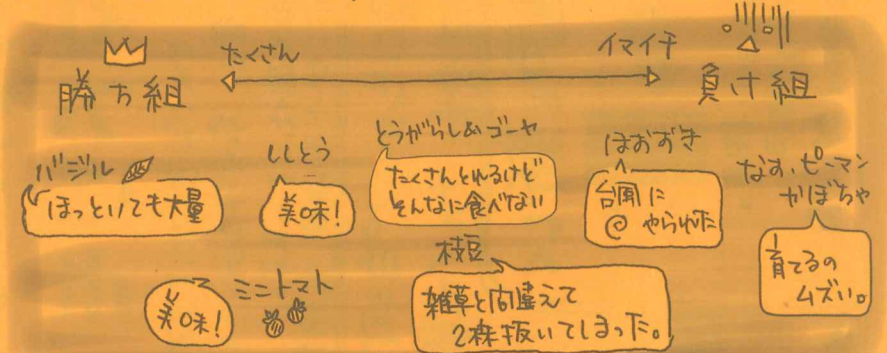 たくさん
イマイチ
勝ち組
負け組
バジル
ほっといても大量
ししとう
美味!
とうがらし&ゴーヤ
たくさんとれるけど
そんなに食べない
ほおずき
台風に
やられた
なす、ピーマン
かぼちゃ
育てるの
ムズい。
ミニトマト
美味!
枝豆
雑草と間違えて
2株抜いてしまった。